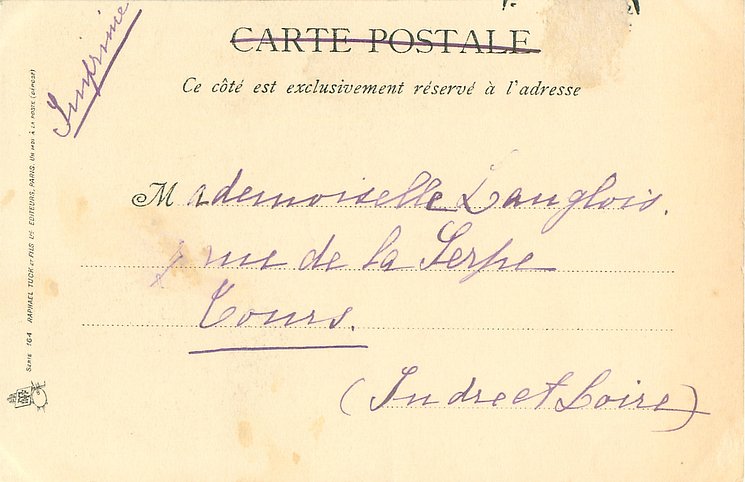 Imprimé
CARTE POSTALE
Ce côté est exclusivement réservé à l'adresse
Mademoiselle Langlois.
rue de la Serpe
Tours.
(Indre et Loire)
SERIE 164 RAPHAEL TUCK ET FILS LTD EDITEURS, PARIS. UN MIDI A LA POSTE (DÉPOSÉ)